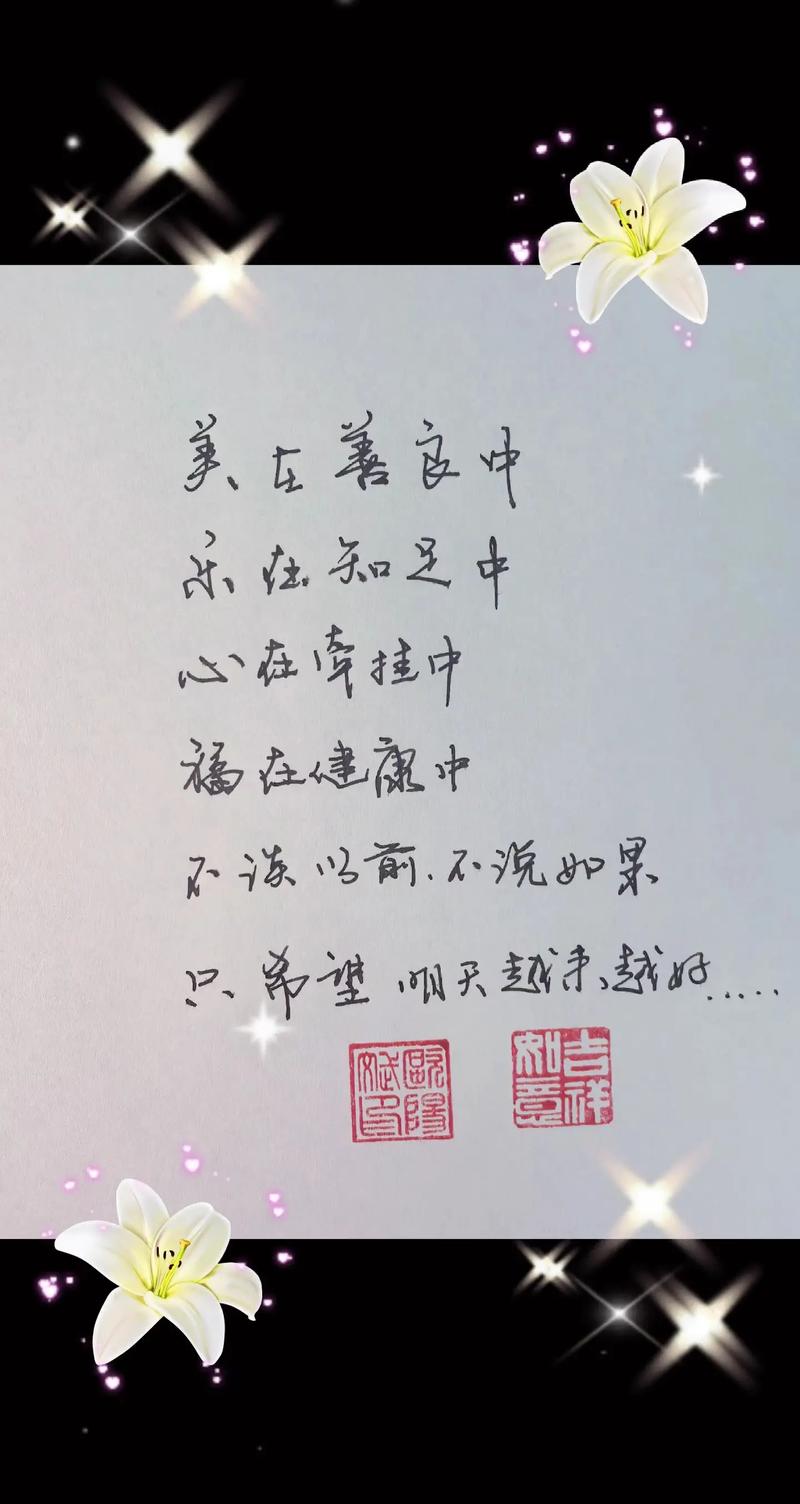 美在善良中
乐在知足中
心在牵挂中
福在健康中
不谈以前.不说如果
只希望明天越来越好.....
欧阳斌印
吉祥如意